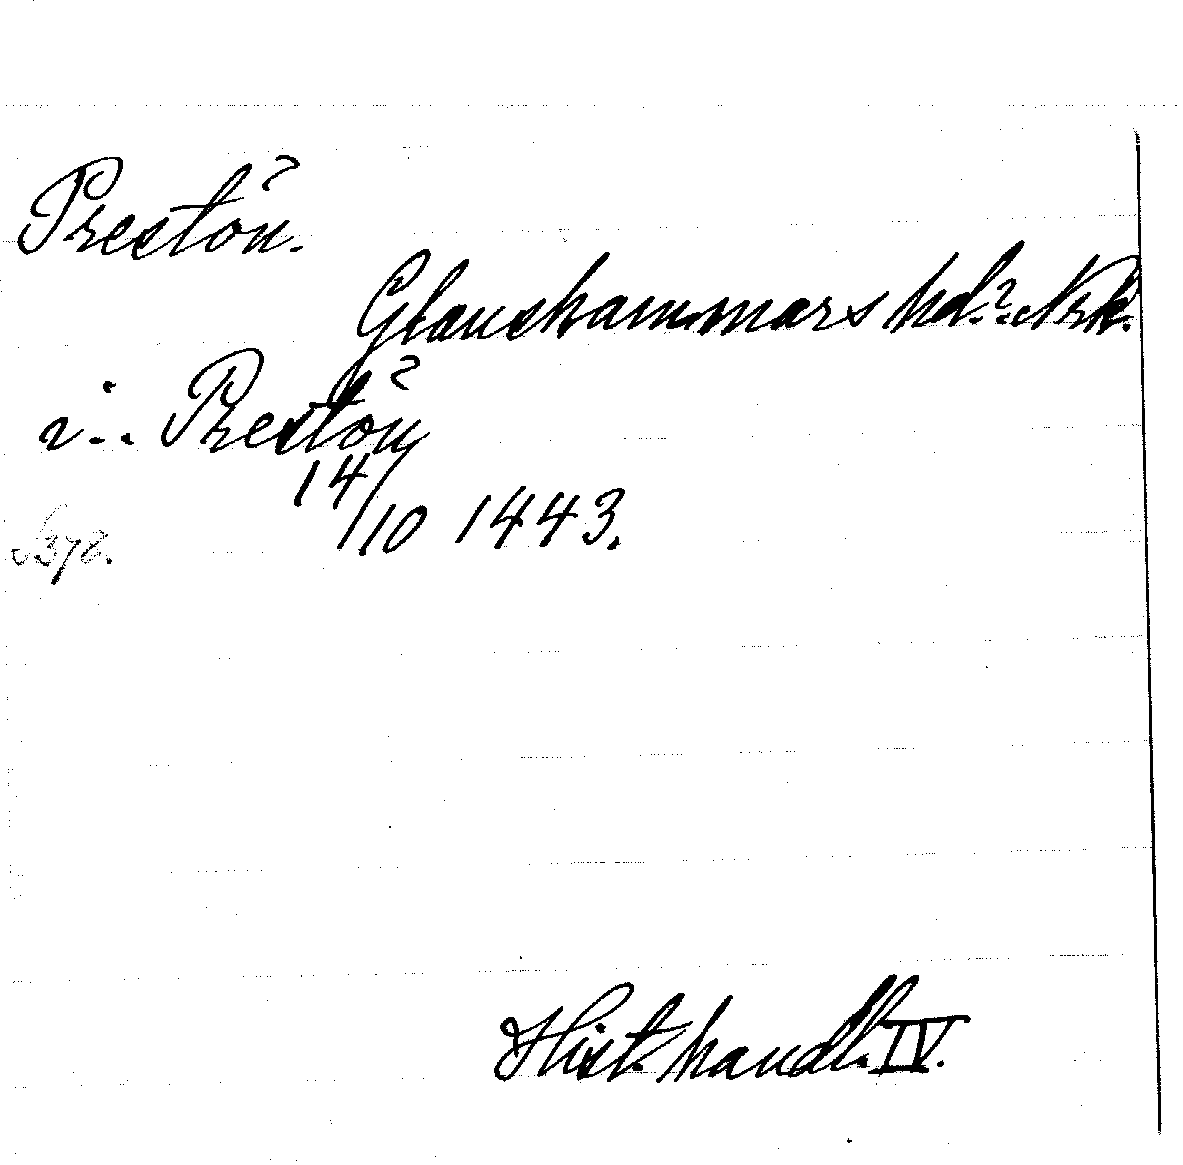 Prestön?
Glanshammars hd.? Nrk.
i.. Prestön?
14/10 1443.
S372.
Hist. handl. IV.